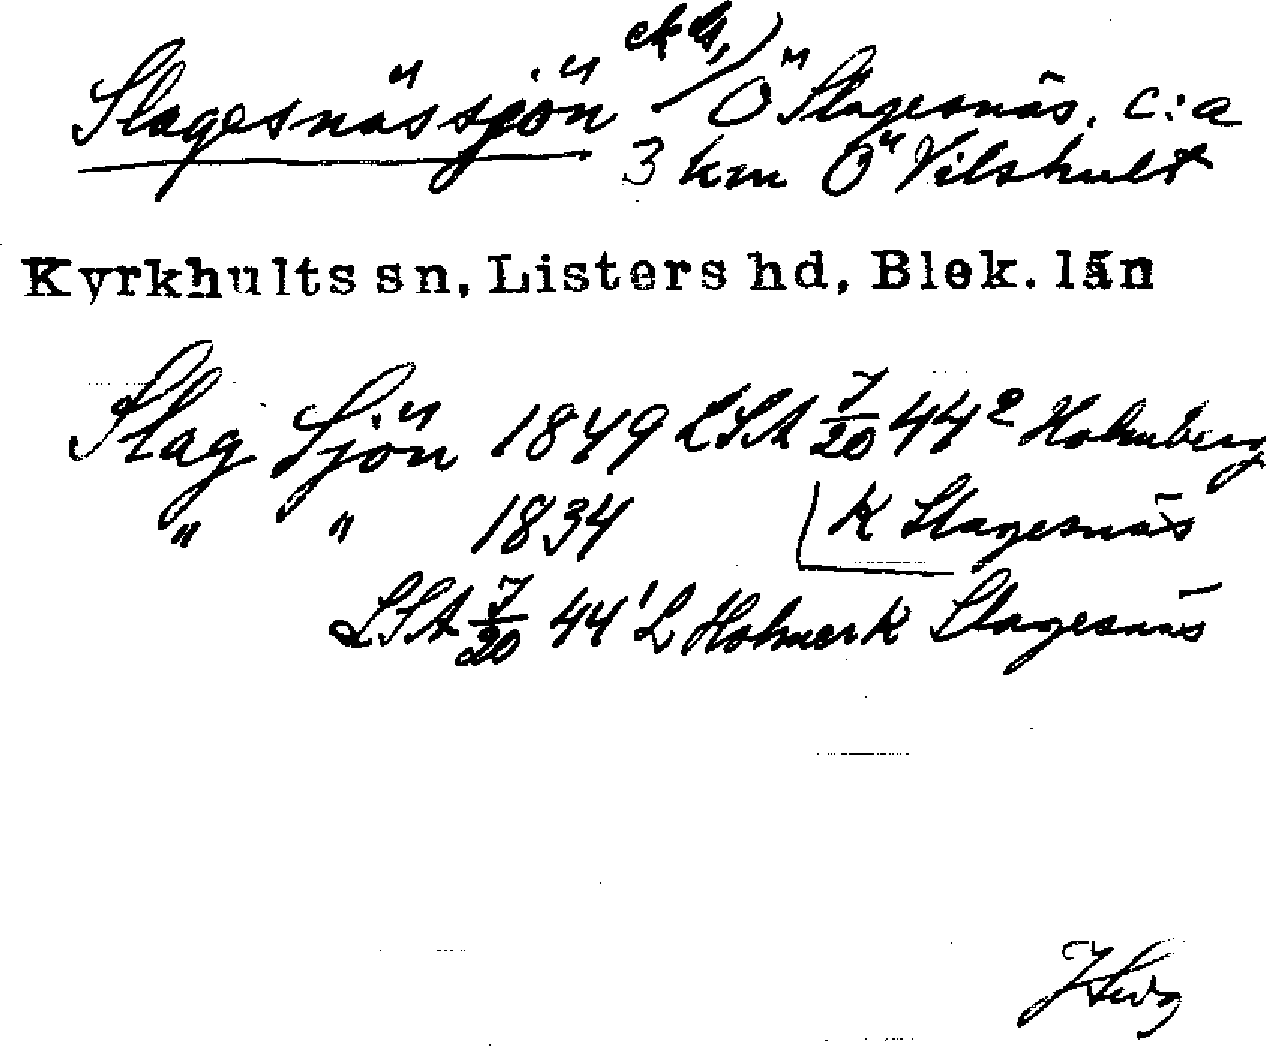 Slagesnässjön Ö Slagesnäs, c:a
3 km Ö Vilshult
Kyrkhults sn, Listers hd, Blek. län
Slag Sjön 1849 LSA 7/20 44² Holmberg
" " 1834 K Slagesnäs
LSA 7/20 44¹ L Holmer K Slagesnäs